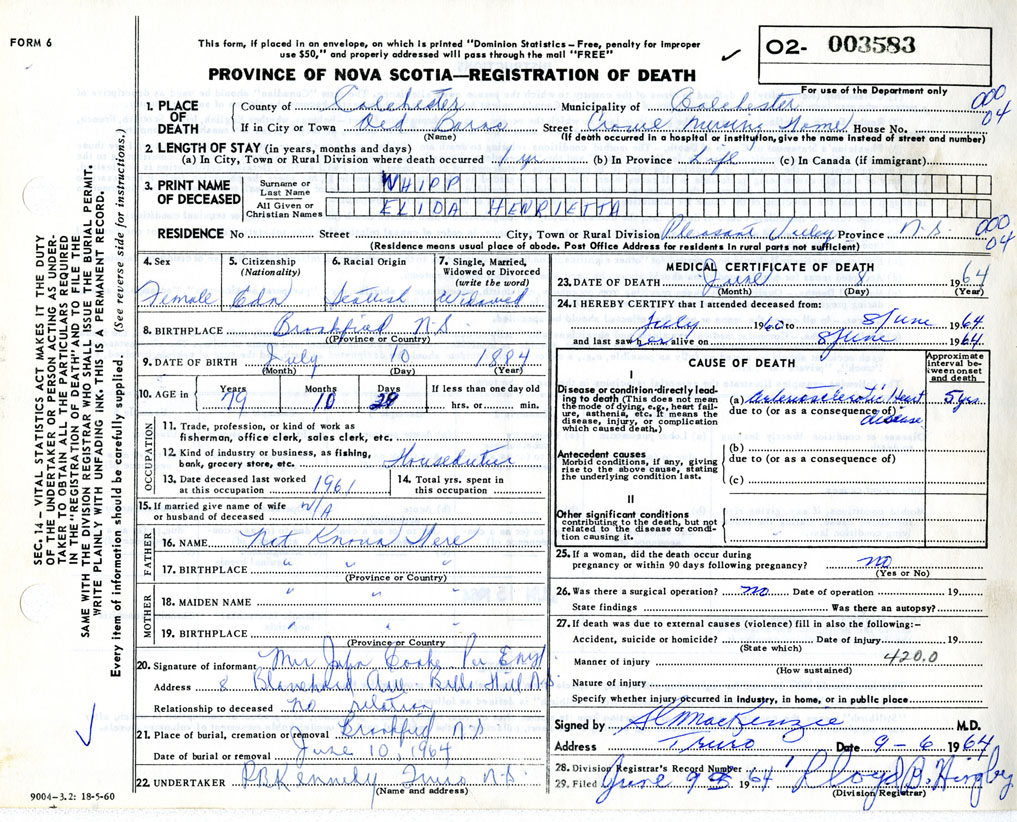 FORM 6
This form, if placed in an envelope, on which is printed "Dominion Statistics – Free, penalty for improper
use $50," and properly addressed will pass through the mail "FREE"
02- 003583
For use of the Department only
PROVINCE OF NOVA SCOTIA—REGISTRATION OF DEATH
SEC. 14 – VITAL STATISTICS ACT MAKES IT THE DUTY
OF THE UNDERTAKER OR PERSON ACTING AS UNDER-
TAKER TO OBTAIN ALL THE PARTICULARS REQUIRED
IN THE "REGISTRATION OF DEATH" AND TO FILE THE
SAME WITH THE DIVISION REGISTRAR WHO SHALL ISSUE THE BURIAL PERMIT.
WRITE PLAINLY WITH UNFADING INK. THIS IS A PERMANENT RECORD.
Every item of information should be carefully supplied. (See reverse side for instructions.)
1. PLACE OF DEATH
County of Colchester Municipality of Colchester 000 04
If in City or Town Old Barns Street Crowe Nursing Home House No.
(Name) (If death occurred in a hospital or institution, give the name instead of street and number)
2. LENGTH OF STAY (in years, months and days)
(a) In City, Town or Rural Division where death occurred 1 yr (b) In Province Life (c) In Canada (if immigrant)
3. PRINT NAME OF DECEASED
Surname or Last Name WHIPP
All Given or Christian Names ELIDA HENRIETTA
RESIDENCE No Street City, Town or Rural Division Pleasant Valley Province N.S. 000 04
(Residence means usual place of abode. Post Office Address for residents in rural parts not sufficient)
4. Sex Female
5. Citizenship (Nationality) Cdn
6. Racial Origin Scotish
7. Single, Married, Widowed or Divorced (write the word) Widowed
8. BIRTHPLACE Brookfield N.S.
(Province or Country)
9. DATE OF BIRTH July 10 1884
(Month) (Day) (Year)
10. AGE in Years 79 Months 10 Days 29 If less than one day old hrs. or min.
OCCUPATION
11. Trade, profession, or kind of work as
fisherman, office clerk, sales clerk, etc.
12. Kind of industry or business, as fishing,
bank, grocery store, etc. Houseduties
13. Date deceased last worked at this occupation 1961
14. Total yrs. spent in this occupation
15. If married give name of wife
or husband of deceased N/A
FATHER
16. NAME Not Known Here
17. BIRTHPLACE " "
(Province or Country)
MOTHER
18. MAIDEN NAME " "
19. BIRTHPLACE " "
(Province or Country
20. Signature of informant Mrs John Cooke
Address 8 Blanchard Ave - Bible Hill N.S.
Relationship to deceased no relation
21. Place of burial, cremation or removal Brookfield N.S.
Date of burial or removal June 10, 1964
22. UNDERTAKER Truro N.S.
(Name and address)
9004-3.2: 18-5-60
MEDICAL CERTIFICATE OF DEATH
23. DATE OF DEATH June 8 1964
(Month) (Day) (Year)
24. I HEREBY CERTIFY that I attended deceased from:
July 1960 to 8 June 1964
and last saw her alive on 8 June 1964.
CAUSE OF DEATH
Approximate interval between onset and death
I
Disease or condition directly lead-
ing to death (This does not mean
the mode of dying, e.g., heart fail-
ure, asthenia, etc. It means the
disease, injury, or complication
which caused death.)
(a) arteriosclerotic Heart disease 5 yrs
due to (or as a consequence of)
Antecedent causes
Morbid conditions, if any, giving
rise to the above cause, stating
the underlying condition last.
(b)
due to (or as a consequence of)
(c)
II
Other significant conditions
contributing to the death, but not
related to the disease or condi-
tion causing it.
25. If a woman, did the death occur during
pregnancy or within 90 days following pregnancy? no
(Yes or No)
26. Was there a surgical operation? no Date of operation 19
State findings Was there an autopsy?
27. If death was due to external causes (violence) fill in also the following:-
Accident, suicide or homicide? Date of injury 19
(State which)
420.0
Manner of injury
(How sustained)
Nature of injury
Specify whether injury occurred in industry, in home, or in public place
Signed by MacKenzie M.D.
Address Truro Date 9-6 1964
28. Division Registrar's Record Number
29. Filed June 9 1964 Lloyd B. Hingley
(Division Registrar)